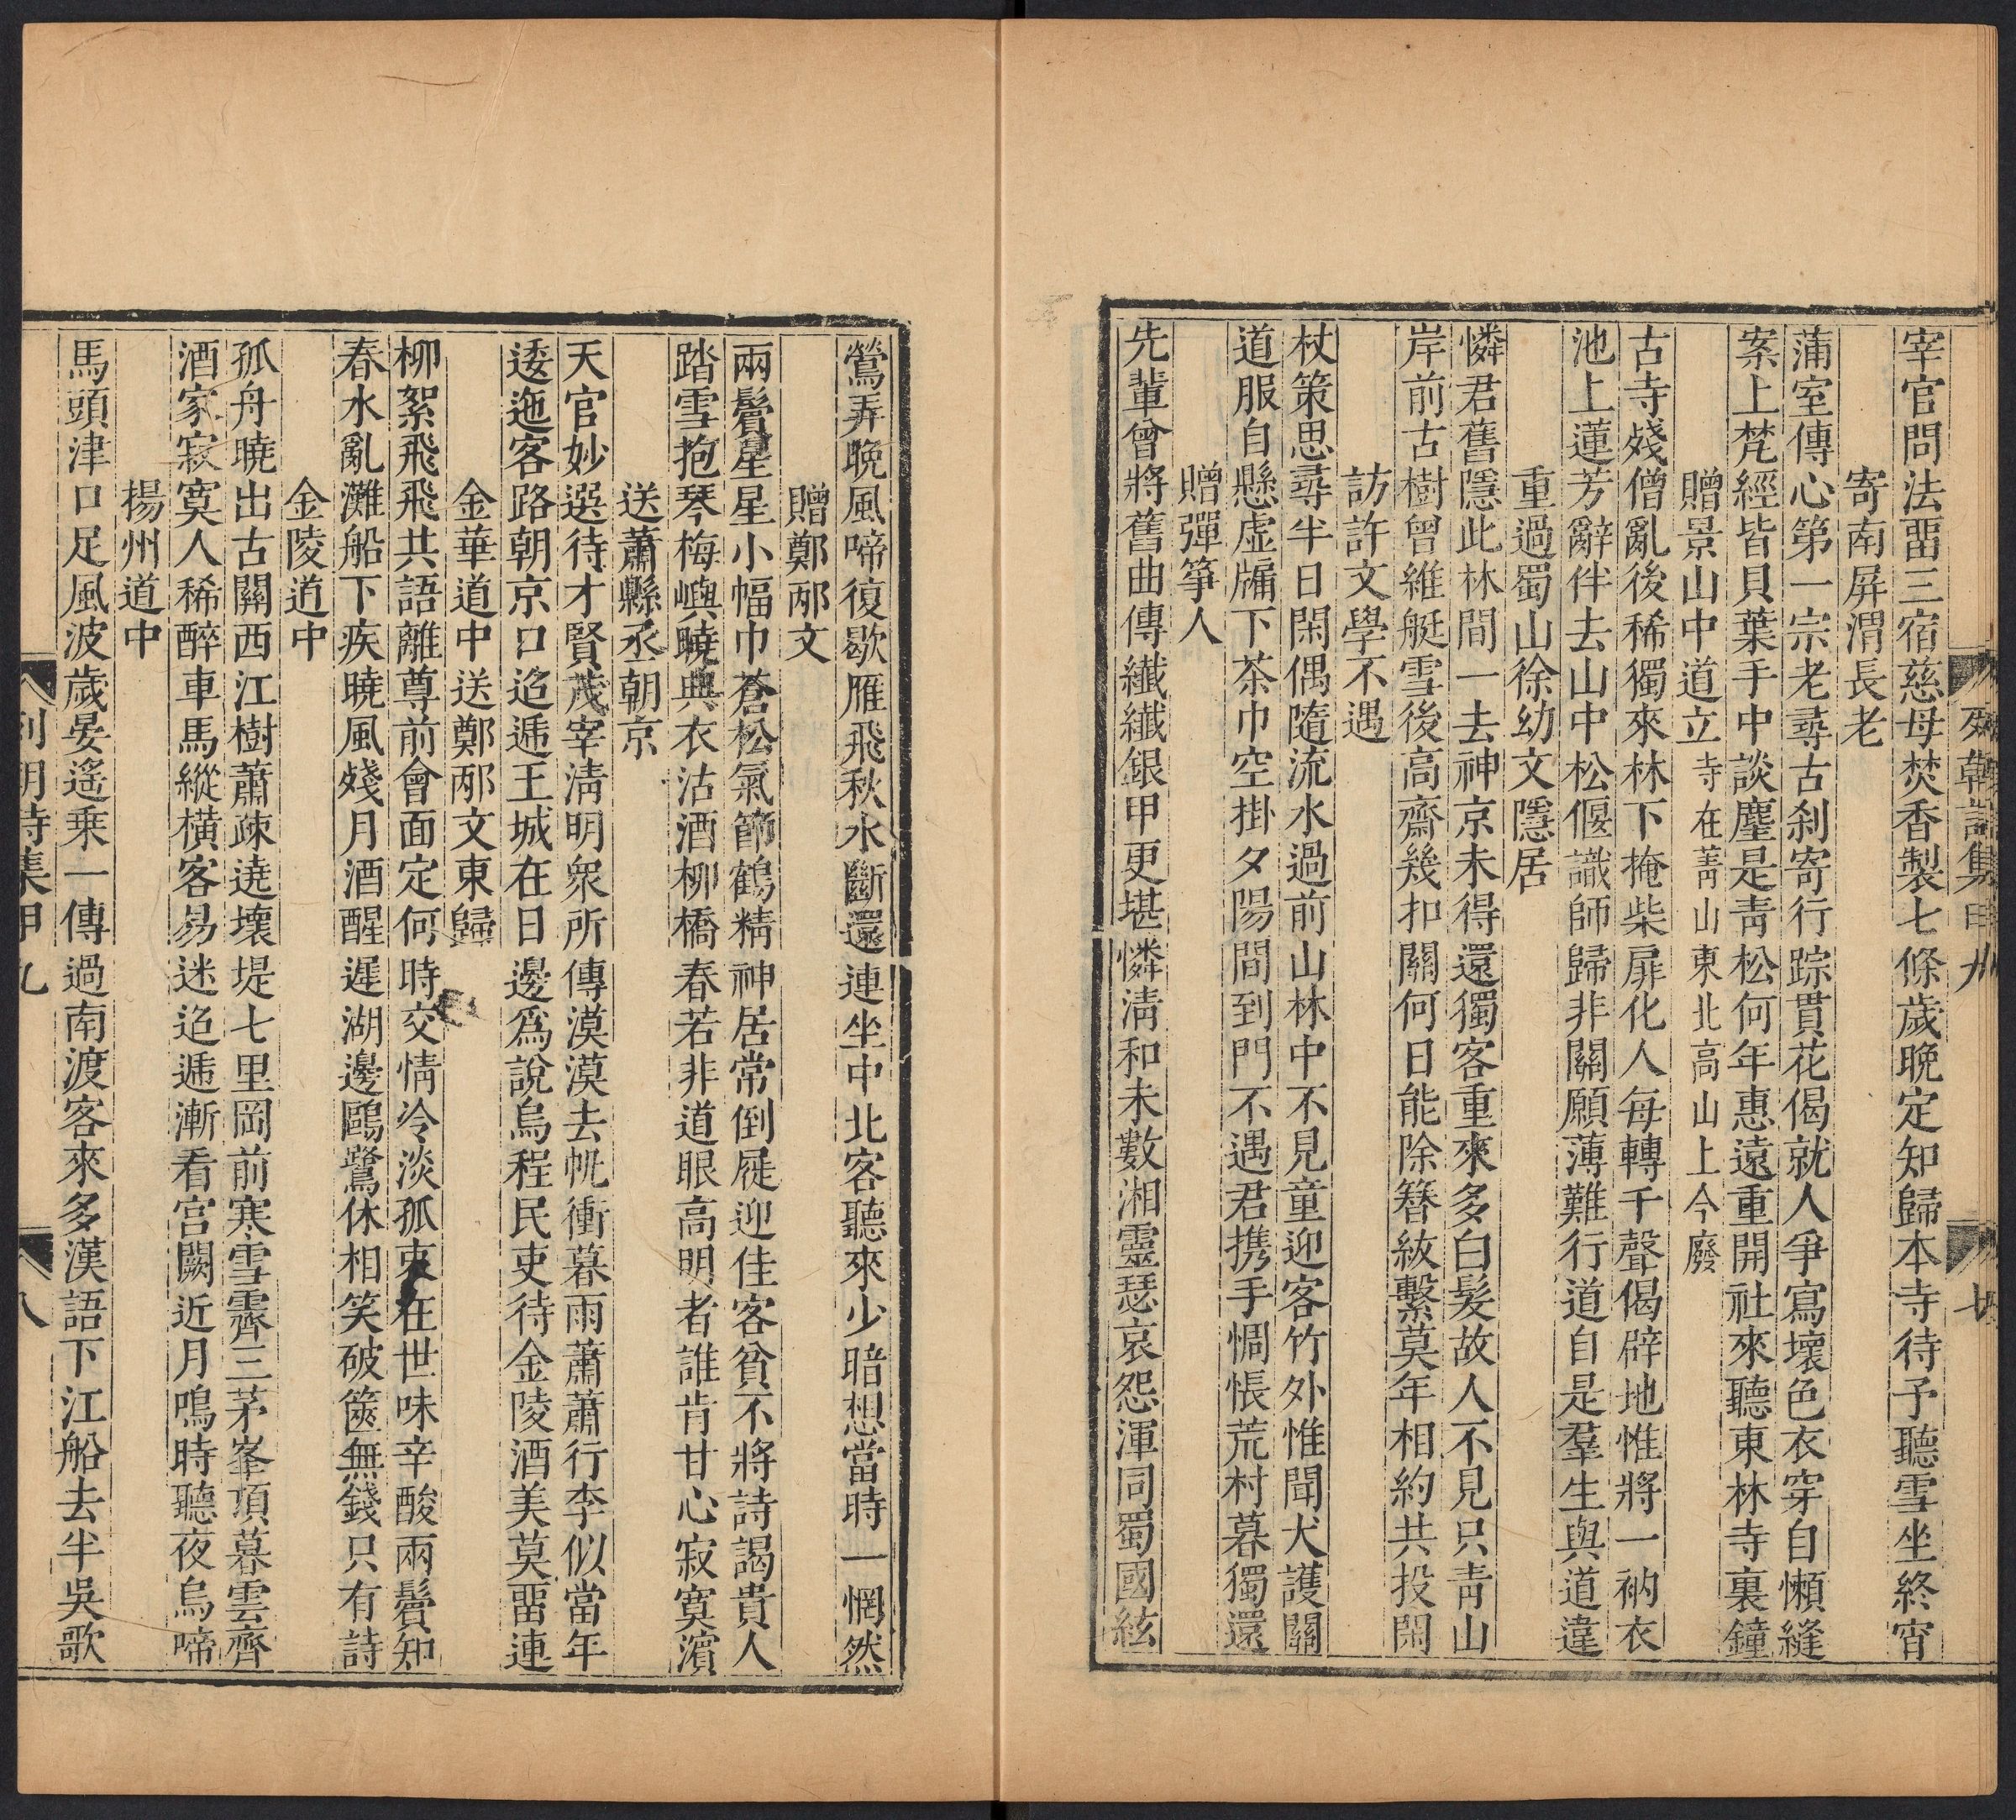 宰官問法畱三宿慈母焚香製七條歲晚定知歸本寺待予聽雪坐終宵
寄南屏渭長老
蒲室傳心第一宗老尋古刹寄行踪貫花偈就人爭寫壞色衣穿自懶縫
案上梵經皆貝葉手中談麈是青松何年惠遠重開社來聽東林寺裏鐘
贈景山中道立寺在菁山東北高山上今廢
古寺殘僧亂後稀獨來林下掩柴扉化人每轉千聲偈辟地惟將一衲衣
池上蓮芳辭伴去山中松偃識師歸非關願薄難行道自是羣生與道違
重過蜀山徐幼文隱居
憐君舊隱此林間一去神京未得還獨客重來多白髮故人不見只青山
岸前古樹曾維艇雪後高齋幾扣關何日能除簪紱繫莫年相約共投閑
訪許文學不遇
杖策思尋半日閑偶隨流水過前山林中不見童迎客竹外惟聞犬護關
道服自懸虛牖下茶巾空掛夕陽間到門不遇君携手惆悵荒村暮獨還
贈彈箏人
先輩曾將舊曲傳纖纖銀甲更堪憐淸和未數湘靈瑟哀怨渾同蜀國絃
鶯弄晚風啼復歇雁飛秋水斷還連坐中北客聽來少暗想當時一惘然
贈鄭邴文
兩鬢星星小幅巾蒼松氣節鶴精神居常倒屣迎佳客貧不將詩謁貴人
踏雪抱琴梅嶼曉典衣沽酒柳橋春若非道眼高明者誰肯甘心寂寞濱
送蕭縣丞朝京
天官妙選待才賢茂宰淸明衆所傳漠漠去帆衝暮雨蕭蕭行李似當年
逶迤客路朝京口迢遞王城在日邊爲說烏程民吏待金陵酒美莫畱連
金華道中送鄭邴文東歸
柳絮飛飛共語離尊前會面定何時交情冷淡孤在世味辛酸兩鬢知
春水亂灘船下疾曉風殘月酒醒遲湖邊鷗鷺休相笑破篋無錢只有詩
金陵道中
孤舟曉出古關西江樹蕭疎遶壞堤七里岡前寒雪霽三茅峯頂暮雲齊
酒家寂寞人稀醉車馬縱橫客易迷迢遞漸看宮闕近月鳴時聽夜烏啼
揚州道中
馬頭津口足風波歲晏遙乘一傳過南渡客來多漢語下江船去半吳歌
列朝詩集甲九
八